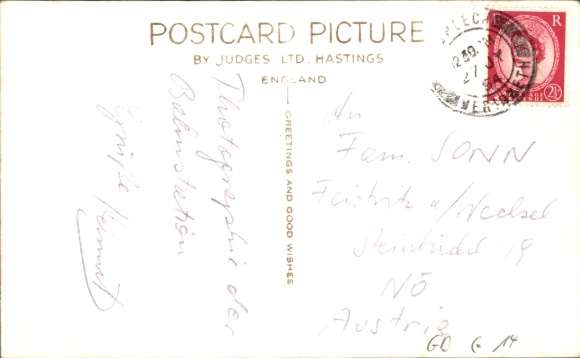 POSTCARD PICTURE
BY JUDGES LTD., HASTINGS
ENGLAND
GREETINGS AND GOOD WISHES
Photographie der
Bahnstation
Grüße Helmut
An
Fam. SONN
Feistritz a/Wechsel
Steinbüchl 99
NÖ
Austria
GD 6 14
R
2½